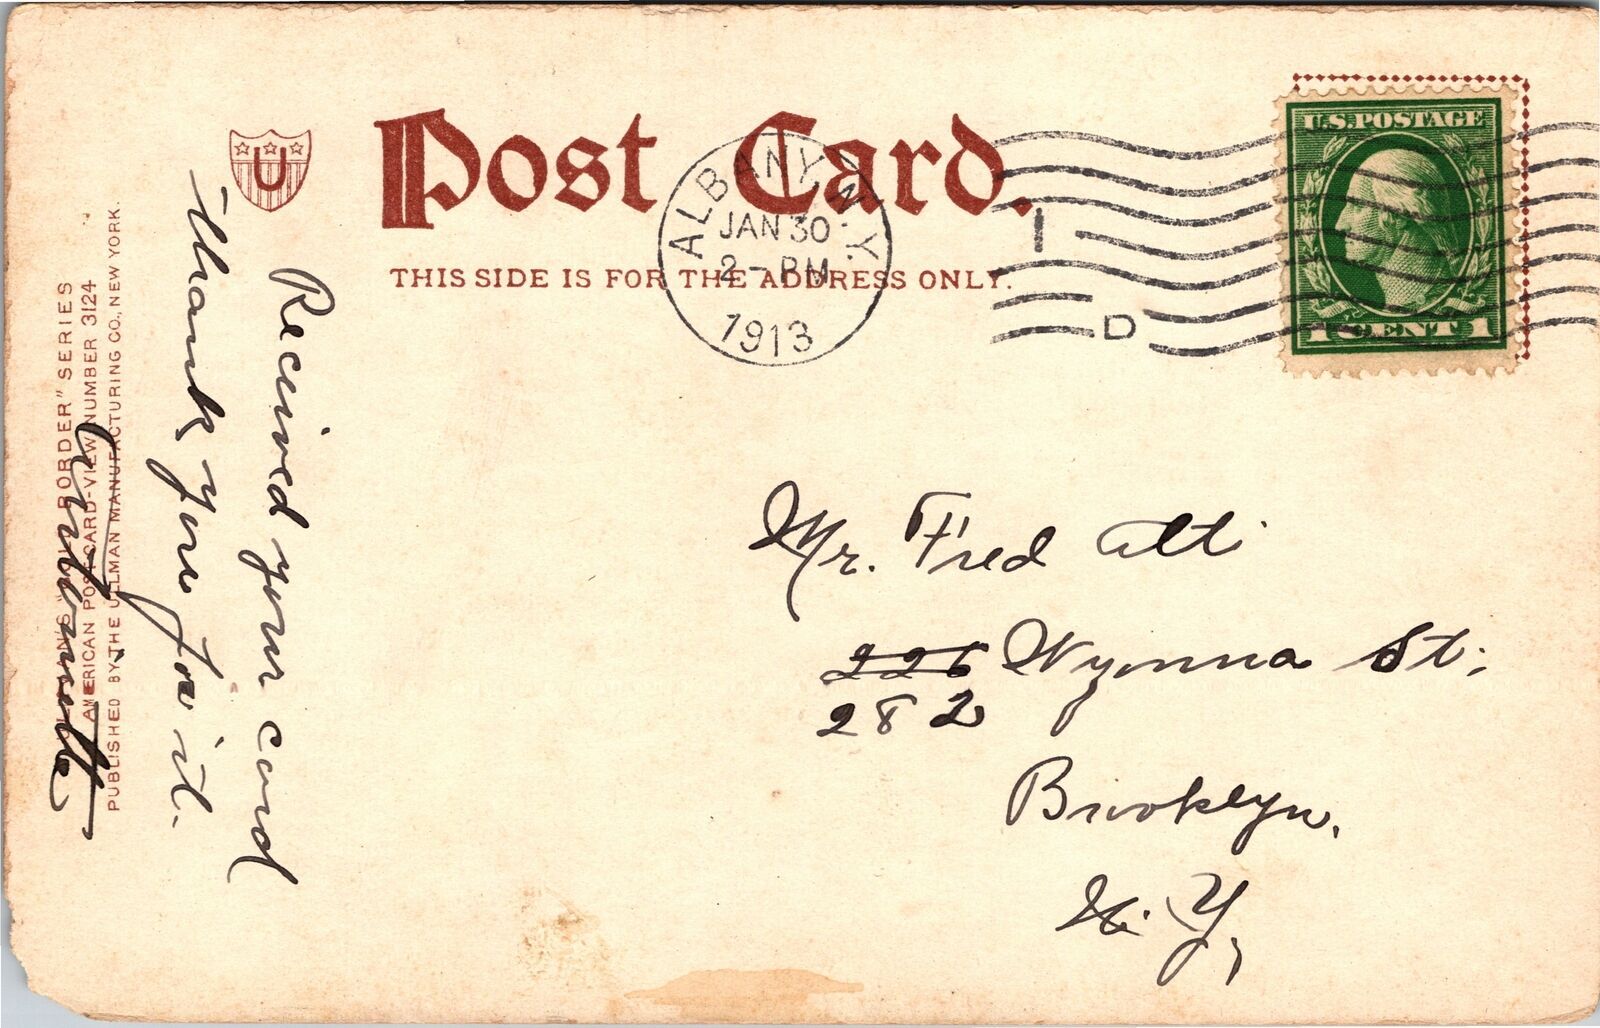 Post Card.
THIS SIDE IS FOR THE ADDRESS ONLY.
U
ALBANY, N.Y.
JAN 30
2 - PM
1913
I
D
U.S. POSTAGE
1 CENT 1
Received your card
thank you for it.
Antonette
SERIES
AMERICAN POST-CARD-VIEW NUMBER 3124
PUBLISHED BY THE ULLMAN MANUFACTURING CO., NEW YORK.
Mr. Fred Alti
226 Wyonna St.
282
Brooklyn.
N. Y,